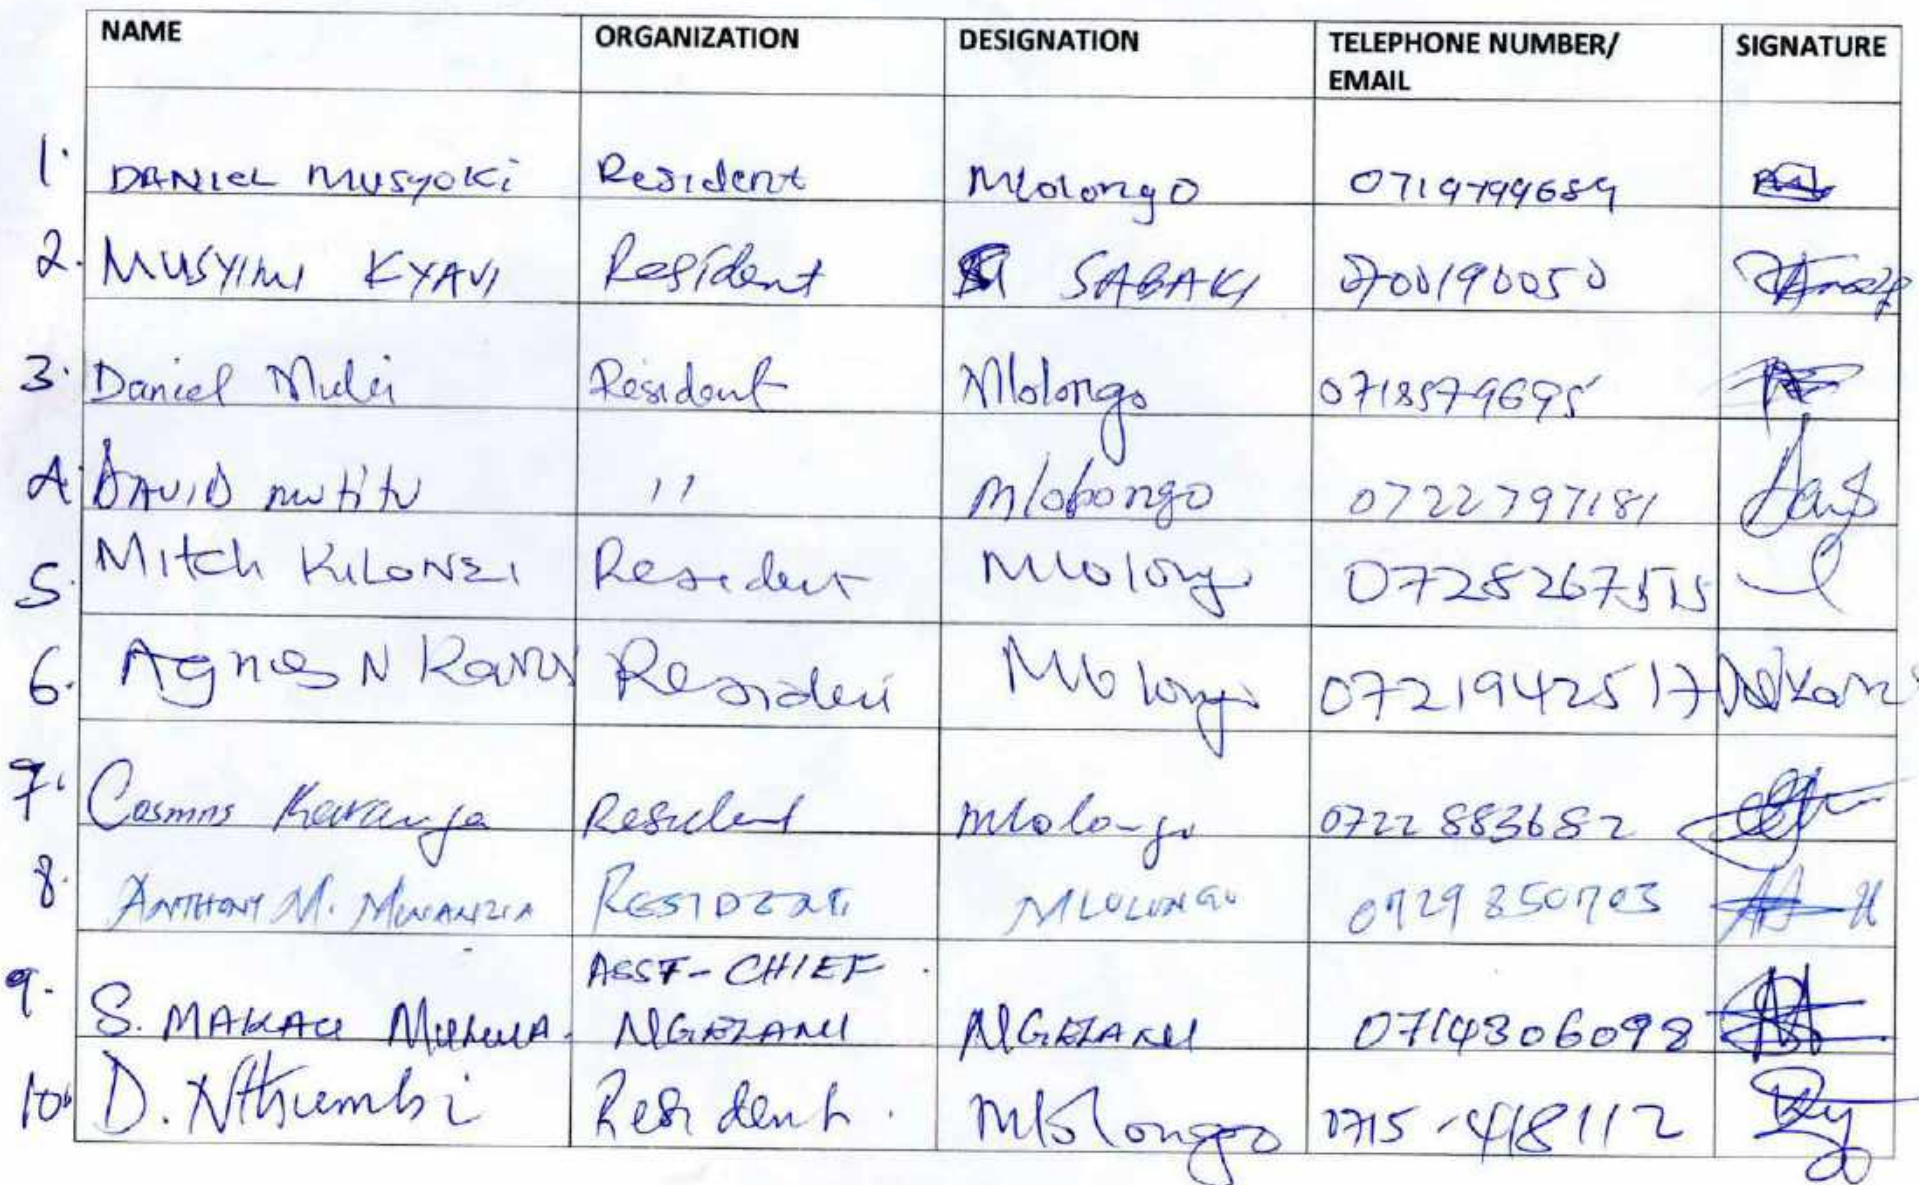 NAME ORGANIZATION DESIGNATION TELEPHONE NUMBER/ EMAIL SIGNATURE
1. DANIEL MUSYOKi Resident Mlolongo 0719799689
2. MUSYIMI KYAVI Resident SABAKI 0700190050
3. Daniel Mulei Resident Mlolongo 0718579695
4. DAVID mutitu 11 Mlolongo 0722797181
5. Mitch KILONZI Resident Mlolongo 0728267515
6. Agnes N Resident Mlolongo 0721942517
7. Cosmas Karanja Resident Mlolongo 0722883682
8. ANTHONY M. MWANZIA RESIDENT MLOLONGO 0729850703
ASST-CHIEF
9. S. MAKAU NGELANI NGELANI 0714306098
10. D. Nthumbi Resident. Mlolongo 0715-418112